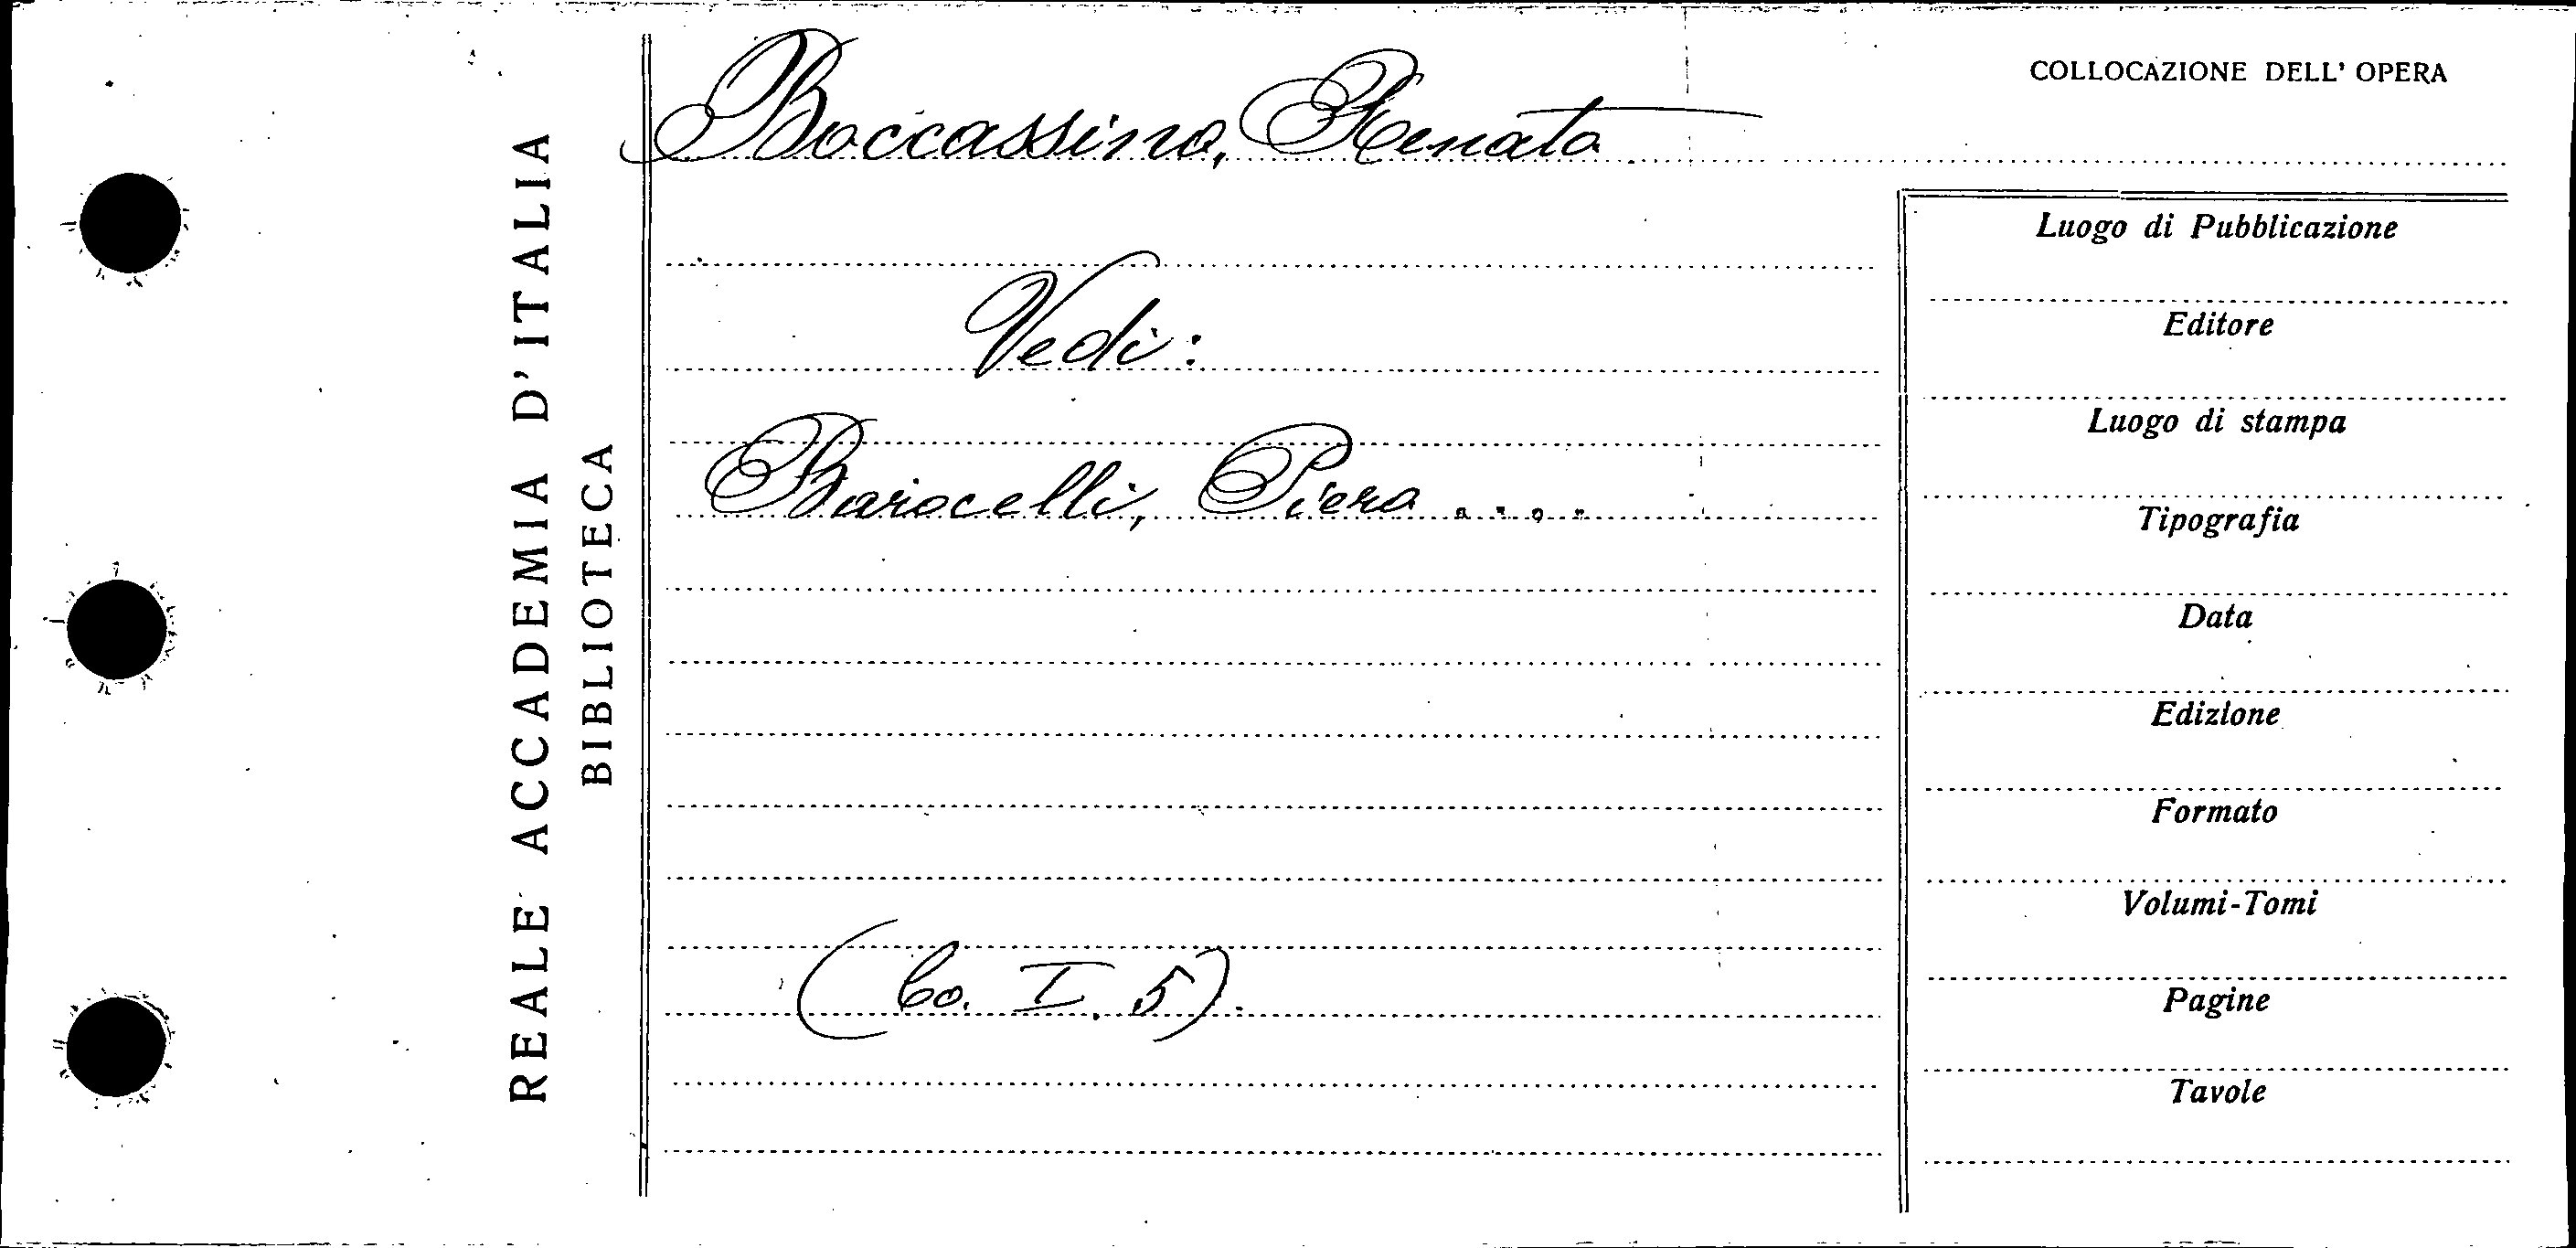 REALE ACCADEMIA D'ITALIA
BIBLIOTECA
Boccassino, Renato
Vedi:
Barocelli, Piero ....
(Co. I. 5).
COLLOCAZIONE DELL' OPERA
Luogo di Pubblicazione
Editore
Luogo di stampa
Tipografia
Data
Edizione
Formato
Volumi-Tomi
Pagine
Tavole